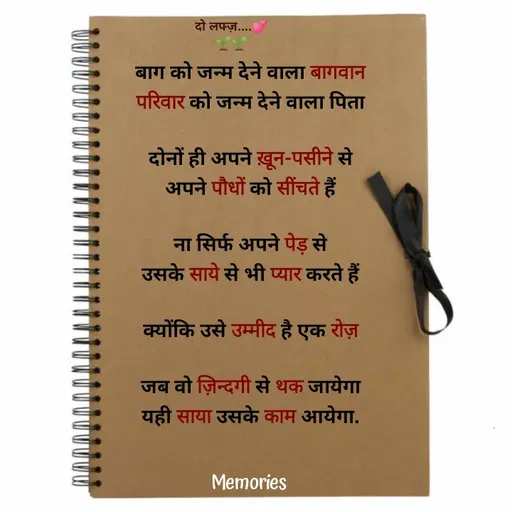 दो लफ्ज़....💕
🌱🌱
बाग को जन्म देने वाला बागवान
परिवार को जन्म देने वाला पिता
दोनों ही अपने ख़ून-पसीने से
अपने पौधों को सींचते हैं
ना सिर्फ अपने पेड़ से
उसके साये से भी प्यार करते हैं
क्योंकि उसे उम्मीद है एक रोज़
जब वो ज़िन्दगी से थक जायेगा
यही साया उसके काम आयेगा.
Memories